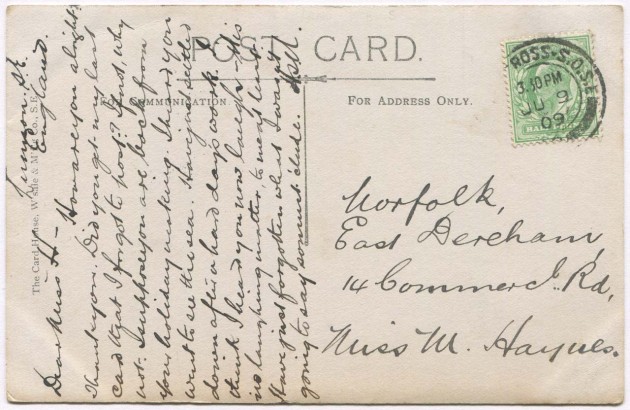 POST CARD.
FOR COMMUNICATION.
FOR ADDRESS ONLY.
The Card House, W'sale & M'f Co., S.E.
ROSS-S.O.
3.30 PM
JU 9
09
England.
Dear Miss H— How are you alright?
Thank you. Did you get my last
card that I forgot to post? I not, why
not. I suppose you are back from
your holiday making. I heard you
went to see the sea. Have you settled
down after a hard days work. I
think I heard you now laugh. This
is no laughing matter, to me at least.
Have just forgotten what I was
going to say so must elude.
Norfolk,
East Dereham,
14 Commercl. Rd,
Miss M. Haynes.